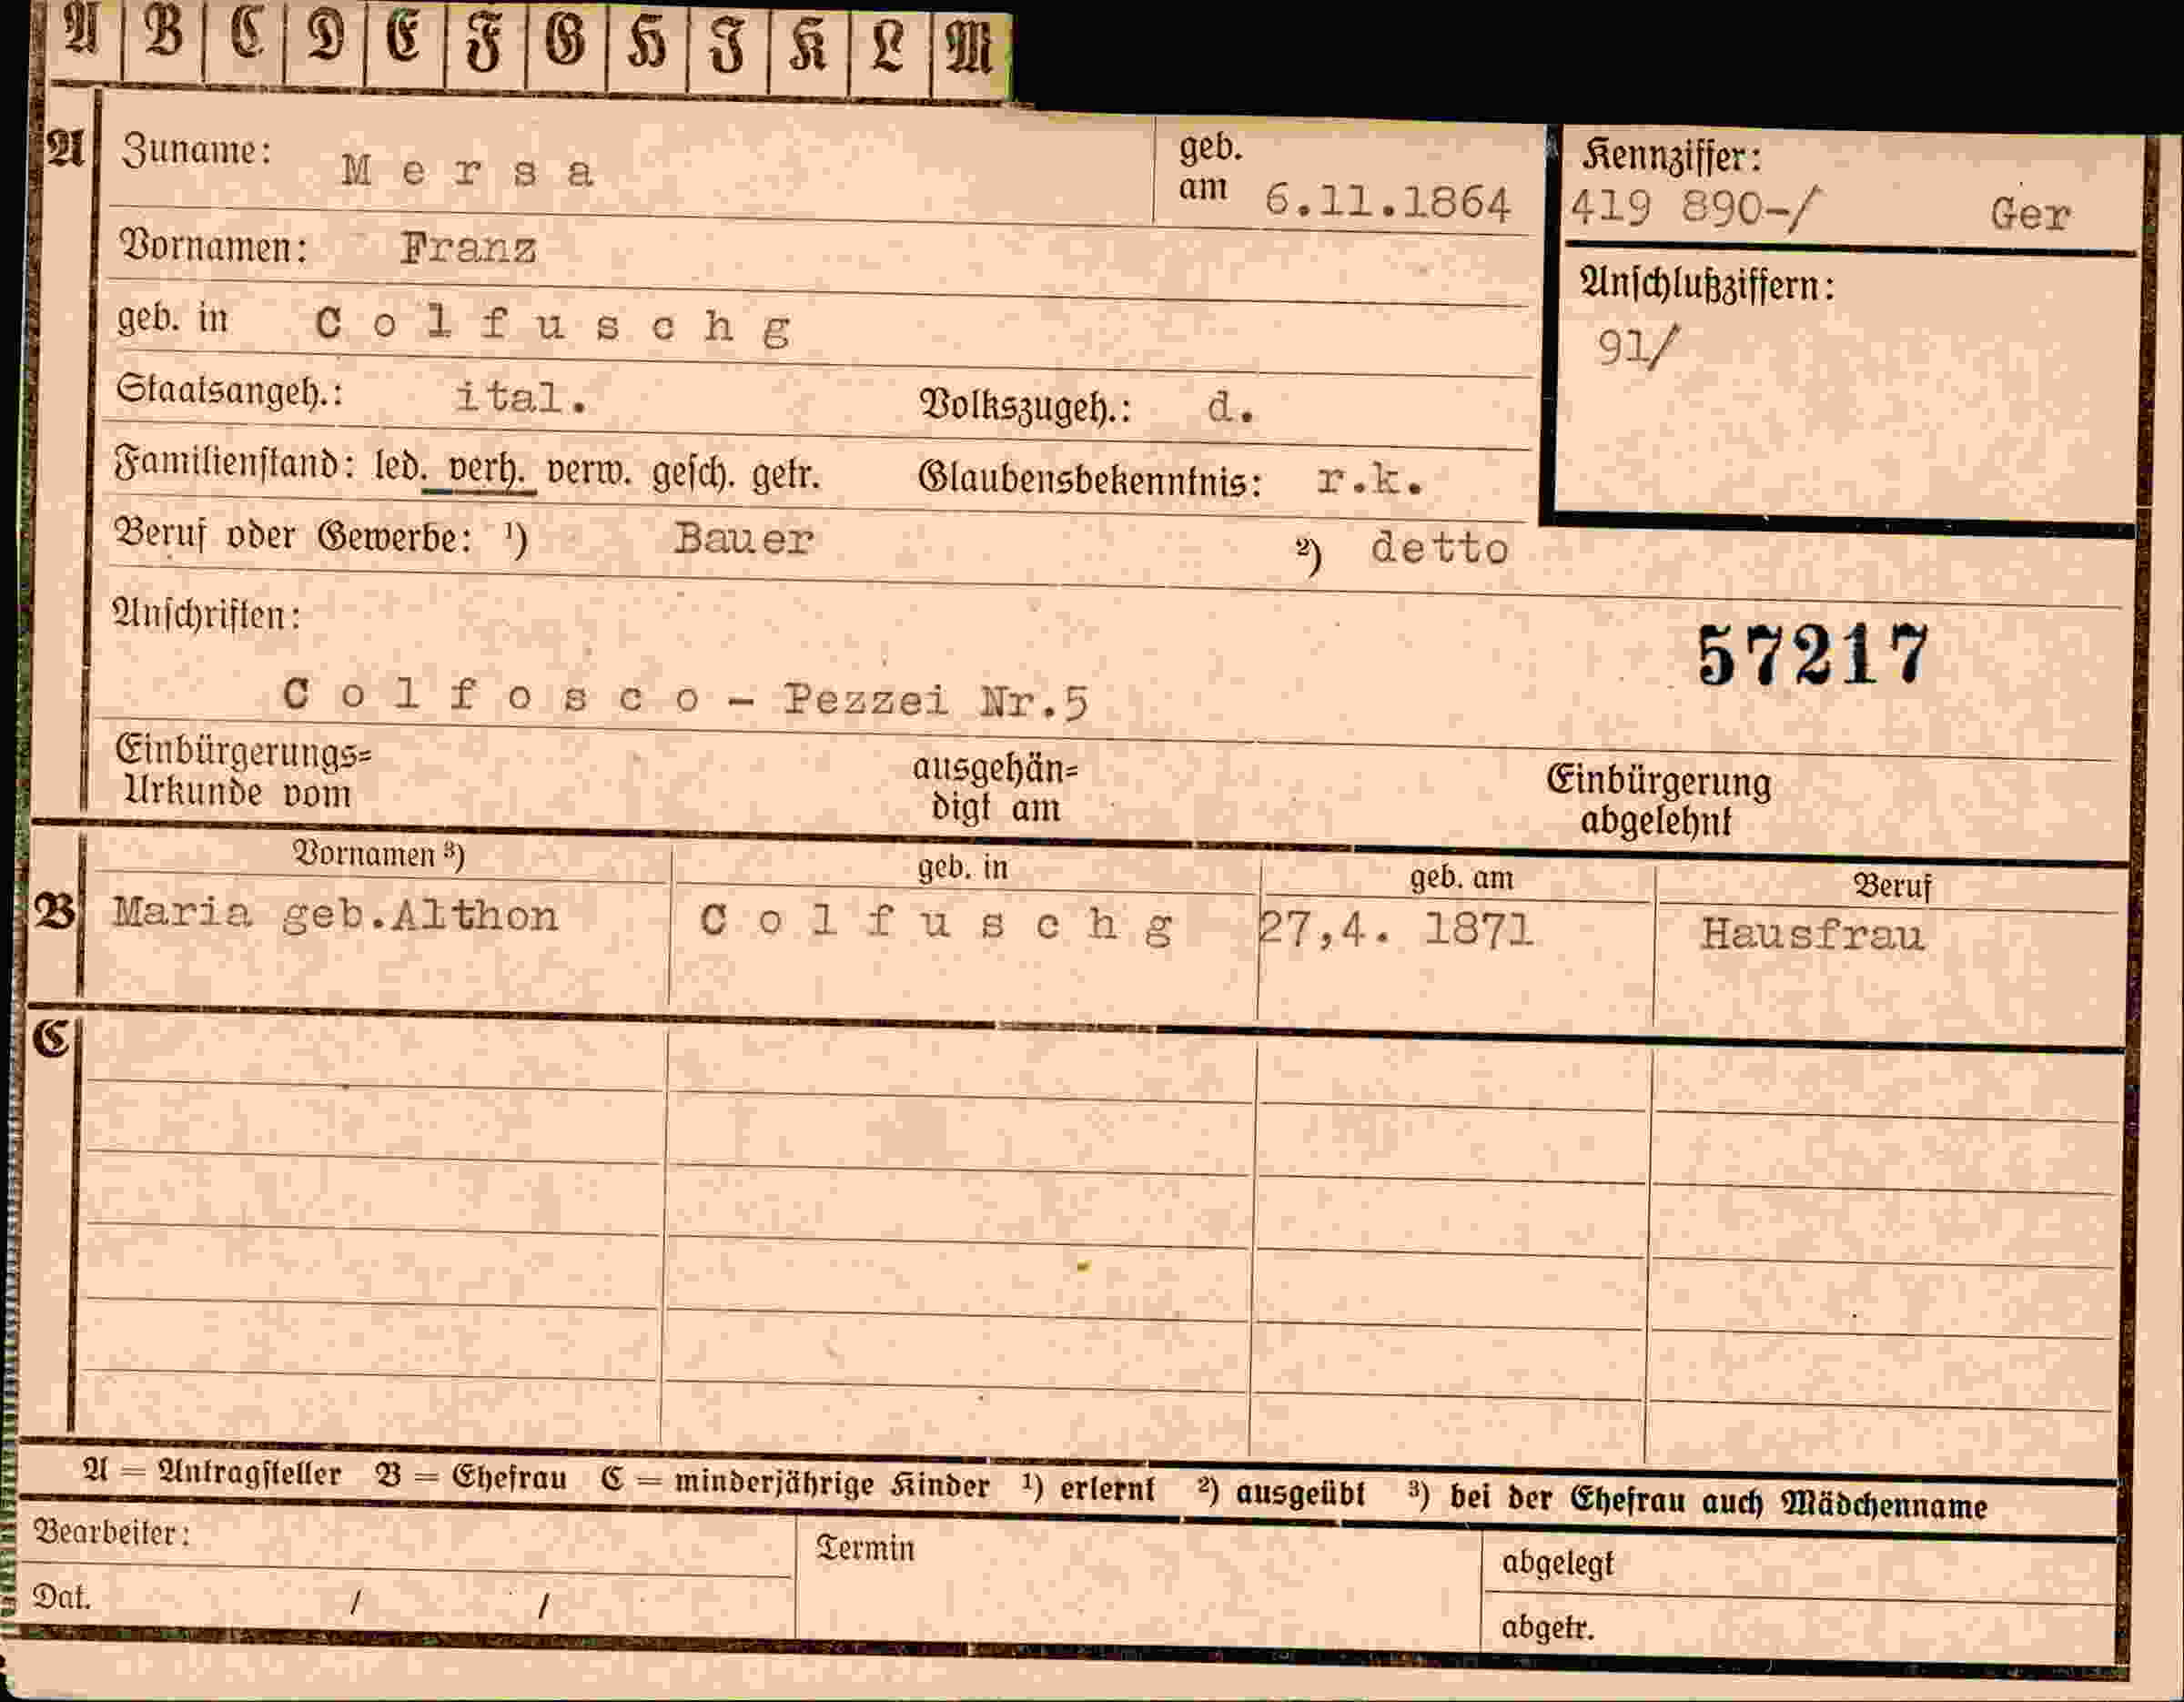 A B C D E F G H I K L M
A Zuname: Mersa geb. am 6.11.1864 Kennziffer: 419 890-/ Ger
Vornamen: Franz
Anschlußziffern:
geb. in Colfuschg
91/
Staatsangeh.: ital. Volkszugeh.: d.
Familienstand: led. verh. verw. gesch. getr. Glaubensbekenntnis: r.k.
Beruf oder Gewerbe: ¹) Bauer ²) detto
Anschriften:
57217
Colfosco - Pezzei Nr.5
Einbürgerungs= ausgehän= Einbürgerung
Urkunde vom digt am abgelehnt
Vornamen ³) geb. in geb. am Beruf
B Maria geb.Althon Colfuschg 27,4. 1871 Hausfrau
C
A = Antragsteller B = Ehefrau C = minderjährige Kinder ¹) erlernt ²) ausgeübt ³) bei der Ehefrau auch Mädchenname
Bearbeiter: Termin abgelegt
Dat. / / abgetr.